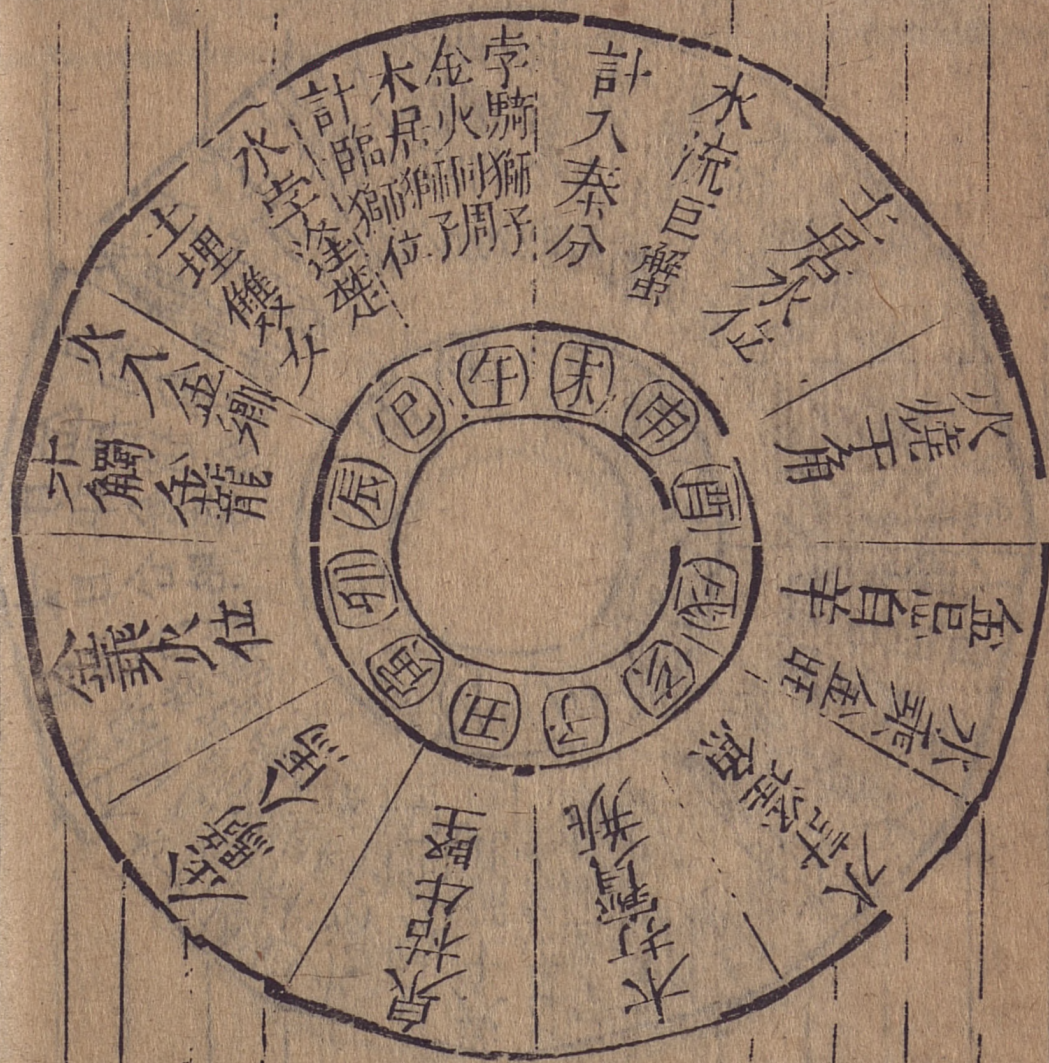 孛騎獅子
金火同周
木居獅子
計臨獅位
水孛逢楚
土埋雙女
火入金鄉
土觸金龍
金乘火位
泉枯牛
木打寶瓶
水計
水乘金
金忌白羊
火燒牛角
土居水位
水流巨蟹
計入秦分
午
未
申
酉
戌
亥
子
丑
寅
卯
辰
巳